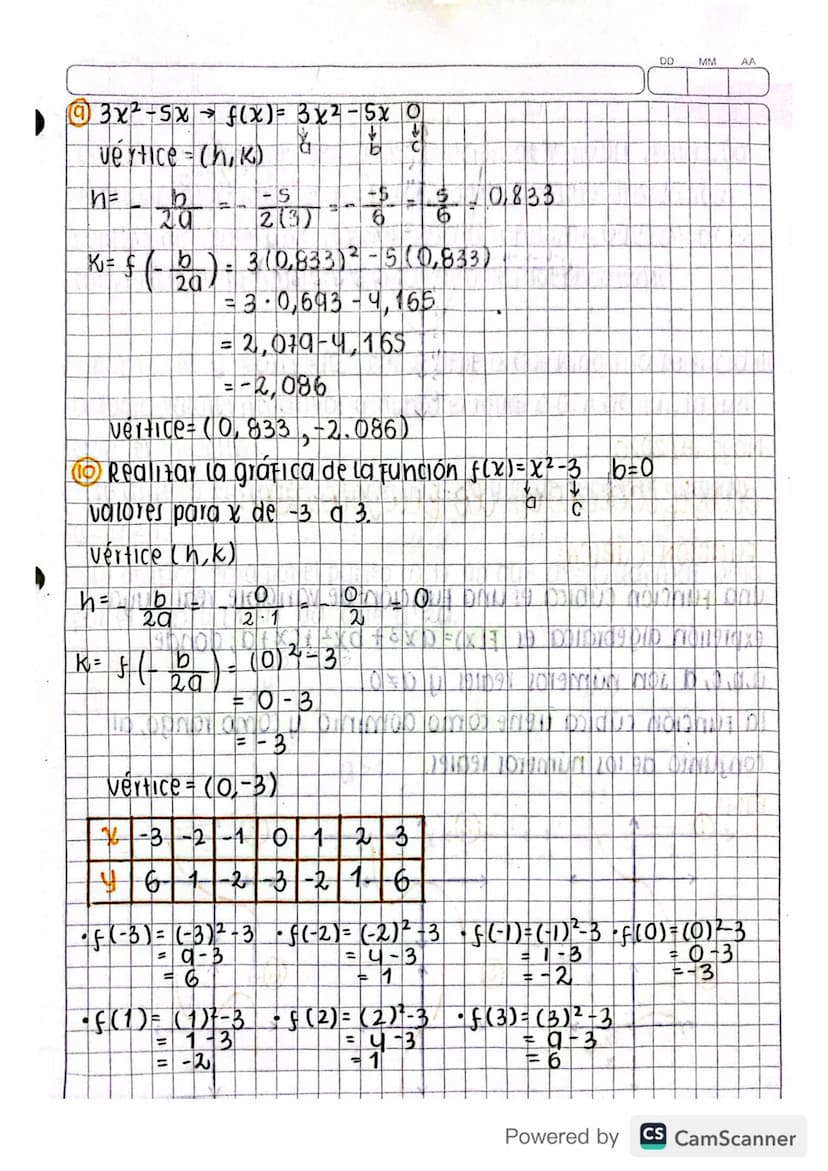 DD MM AA
⑨ 3x²-5x → f(x)= 3x²-5x 0
a b c
vértice = (h,k)
h= - b/2a = - -5/2(3) = - -5/6 = 5/6 = 0,833
k= f(- b/2a) = 3(0,833)² - 5(0,833)
= 3 · 0,693 - 4,165
= 2,079-4,165
= -2,086
vértice= (0,833 , -2.086)
⑩ Realizar la gráfica de la función f(x)=x²-3 b=0
a c
valores para x de -3 a 3.
vértice (h,k)
h= - b/2a = - 0/2·1 = - 0/2 = 0
k= f(- b/2a) = (0)²-3
= 0-3
= -3
vértice = (0,-3)
x -3 -2 -1 0 1 2 3
y 6 1 -2 -3 -2 1 6
· f(-3) = (-3)²-3 · f(-2) = (-2)²-3 · f(-1) = (-1)²-3 · f(0) = (0)²-3
= 9-3 = 4-3 = 1-3 = 0-3
= 6 = 1 = -2 = -3
· f(1) = (1)²-3 · f(2) = (2)²-3 · f(3) = (3)²-3
= 1-3 = 4-3 = 9-3
= -2 = 1 = 6
Powered by CS CamScanner